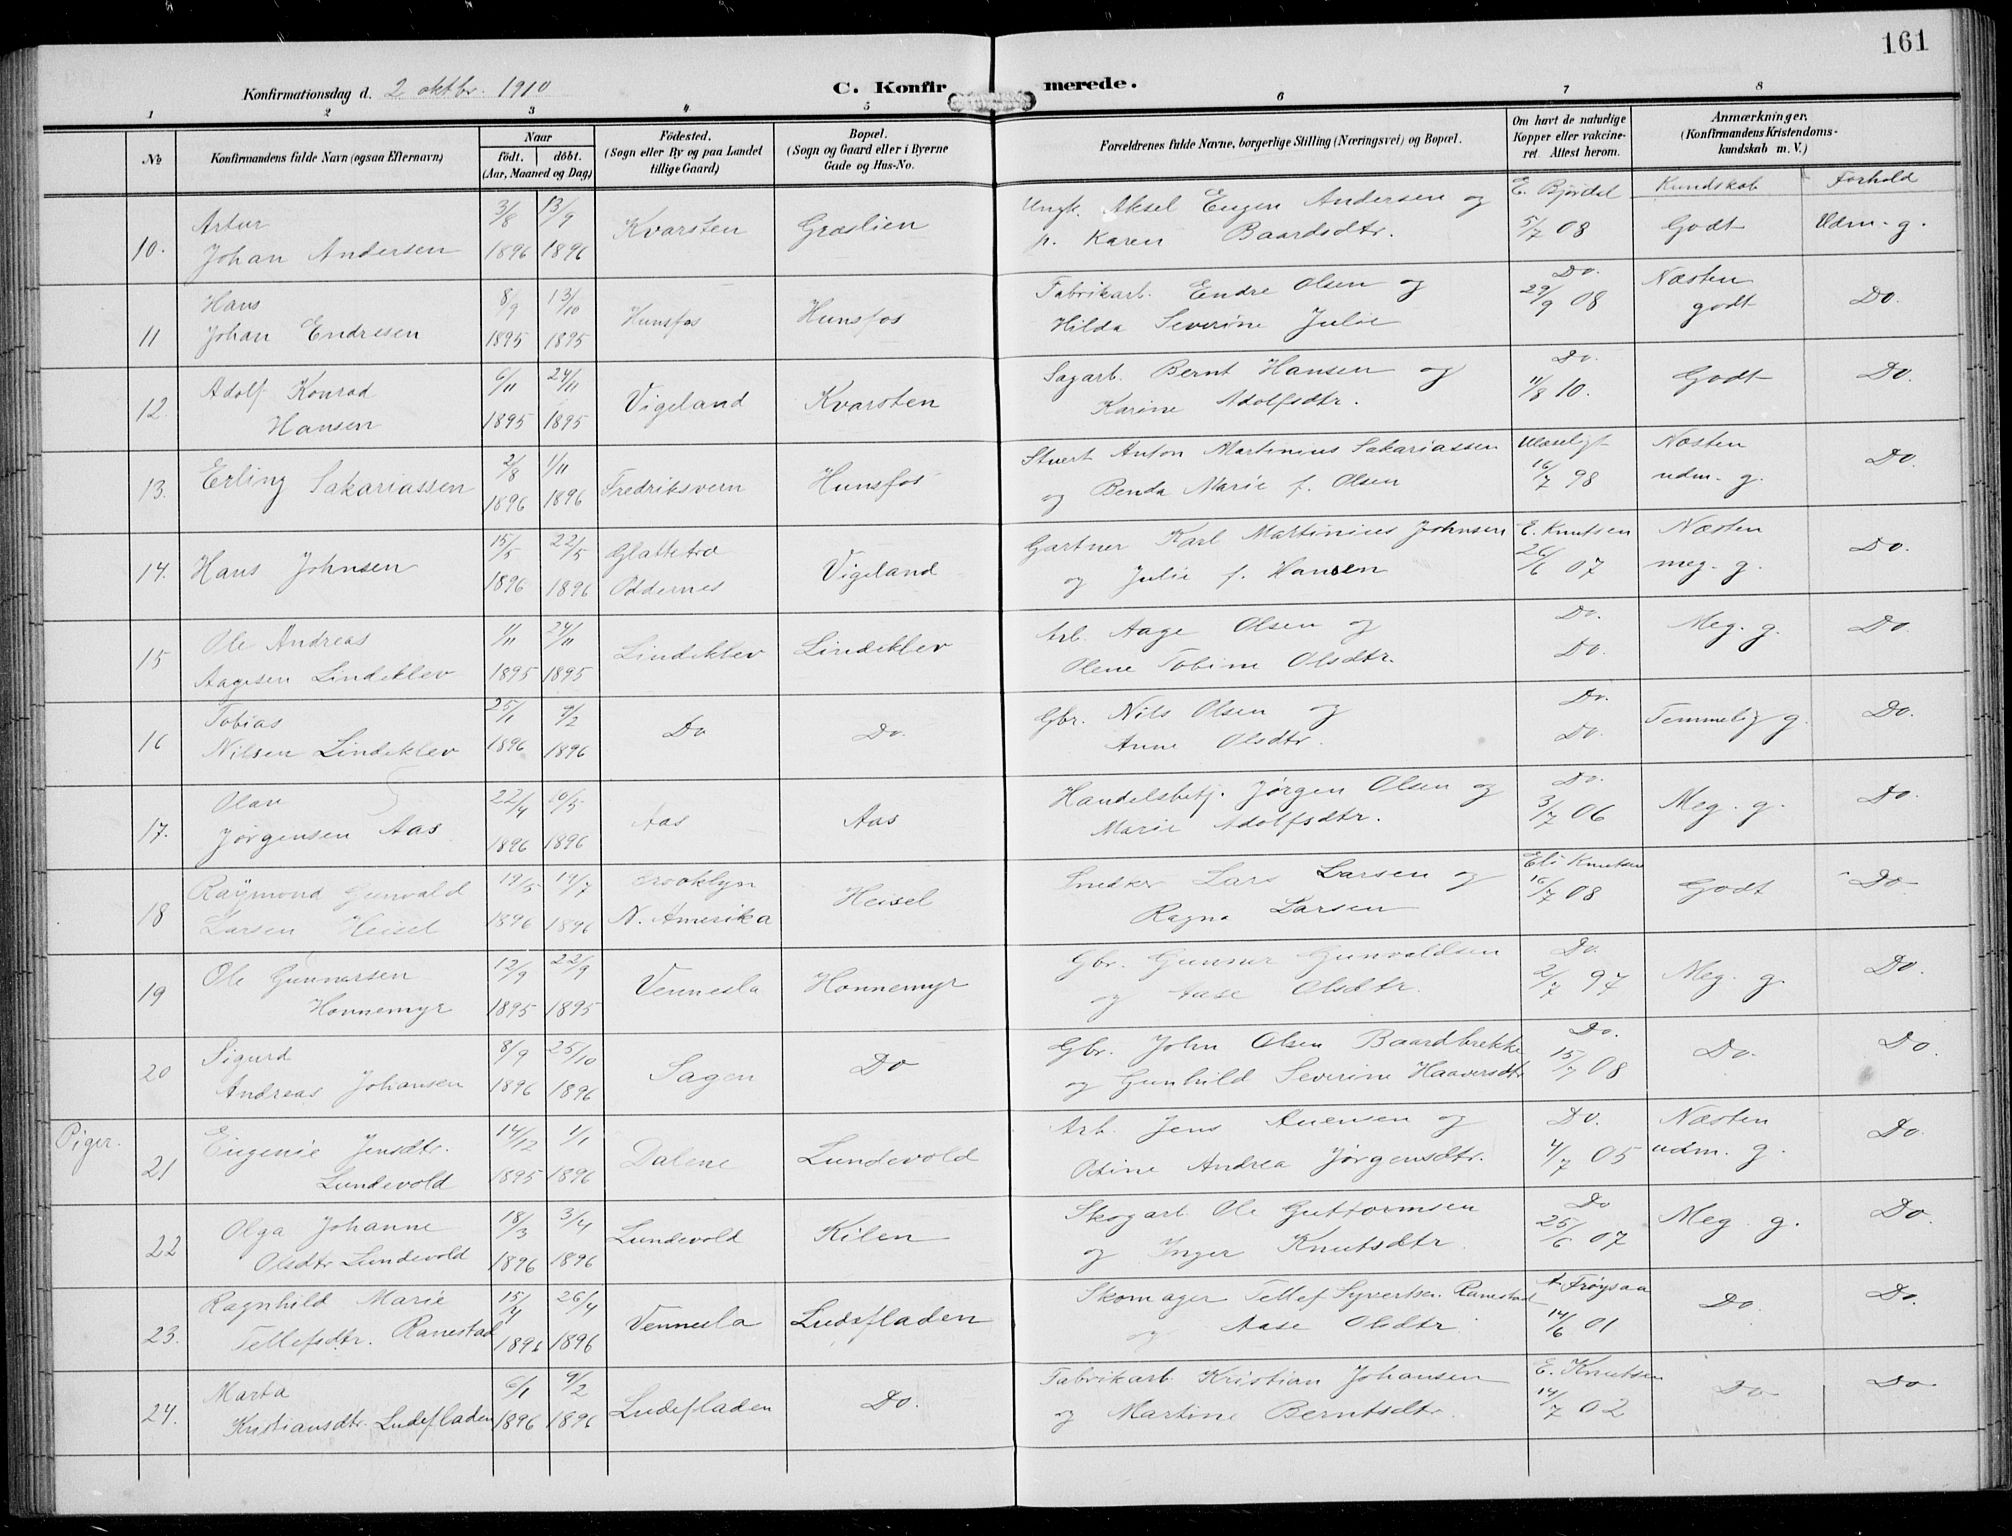 161
Konfirmationsdag d. 2 oktbr. 1910 C. Konfirmerede.
1 2 3 4 5 6 7 8
№ Konfirmandens fulde Navn (ogsaa Efternavn) Naar født. døbt. (Aar, Maaned og Dag) Fødested. (Sogn eller By og paa Landet tillige Gaard) Bopæl. (Sogn og Gaard eller i Byerne Gade og Hus-No. Forældrenes fulde Navne, borgerlige Stilling (Næringsvei) og Bopæl. Om havt de naturlige Kopper eller vakcineret. Attest herom. Anmærkninger. (Konfirmandens Kristendomskundskab m. V.)
Kundskab Forhold
Artur 3/8 13/9 Kvarsten Græslien Ungk. Aksel Eugen Andersen og E. Bjørdal Godt Udm. g.
10. Johan Andersen 1896 1896 p. Karen Baardsdtr. 5/7 08
Hans 8/9 13/10 Hunsfos Hunsfos Fabrikarb. Endre Olsen og Do. 29/9 08 Næsten godt Do.
11 Johan Endresen 1895 1895 Hilda Severine Julie
Adolf Konrad 6/11 24/11 Vigeland Kvarsten Sagarb. Bernt Hansen og Do. 11/8 10. Godt Do.
12. Hansen 1895 1895 Karine Adolfsdtr.
13. Erling Sakariassen 2/8 1/11 Fredriksvern Hunsfos Stuert Anton Martinius Sakariassen Ulæseligt Næsten Do.
1896 1896 og Benda Marie f. Olsen 16/7 98 udm. g.
14. Hans Johnsen 15/5 22/5 Glattetræ Vigeland Gartner Karl Martinius Johnsen E. Knutsen Næsten Do.
1896 1896 Oddernes og Julie f. Hansen 26/6 07 meg. g.
15 Ole Andreas 1/11 24/11 Lindeklev Lindeklev Arb. Aage Olsen og Do. Meg. g. Do.
Aagesen Lindeklev 1895 1895 Olene Tobine Olsdtr. Do.
Tobias 25/1 9/2 Do Do. Gbr. Nils Olsen og Do. Temmelig g. Do.
16 Nilsen Lindeklev 1896 1896 Anne Olsdtr. Do.
Olav 22/4 10/5 Aas Aas Handelsbetj. Jørgen Olsen og Do. Meg. g. Do.
17. Jørgensen Aas 1896 1896 Marie Adolfsdtr. 3/7 06
Raymond Gunvald 19/5 19/7 Brooklyn Heisel Snedker Lars Larsen og Eli Knutsen Godt Do
18 Larsen Heisel 1896 1896 N. Amerika Ragna Larsen 16/7 08
Ole Gunnarsen 12/9 22/9 Vennesla Honnemyr Gbr. Gunnar Gunvaldsen Do. Meg. g. Do.
19 Honnemyr 1895 1895 og Aase Olsdtr. 2/7 97
Sigurd 8/9 25/10 Sagen Do Gbr. John Olsen Baardbrekke Do. Do. Do.
20 Andreas Johansen 1896 1896 og Gunhild Severine Haaversdtr 15/7 08
Piger.
Eugenie Jensdtr. 14/12 1/1 Dalene Lundevold Arb. Jens Auensen og Do. Næsten Do.
21 Lundevold 1895 1896 Odine Andrea Jørgensdtr. 4/7 05 udm. g.
Olga Johanne 18/3 3/4 Lundevold Kilen Skogarb Ole Guttormsen Do Meg. g. Do.
22 Olsdtr Lundevold 1896 1896 og Inger Knutsdtr. 25/6 07
Ragnhild Marie 15/4 26/4 Vennesla Ludefladen Skomager Tellef Syvertsen Ranestad Frøysaa Do. Do.
23. Tellefsdtr. Ranestad 1896 1896 og Aase Olsdtr 14/6 01
Marta 6/1 9/2 Ludefladen Do. Fabrikarb Kristian Johansen E. Knutsen Do Do
24. Kristiansdtr. Ludefladen 1896 1896 og Martine Berntsdtr. 14/7 02